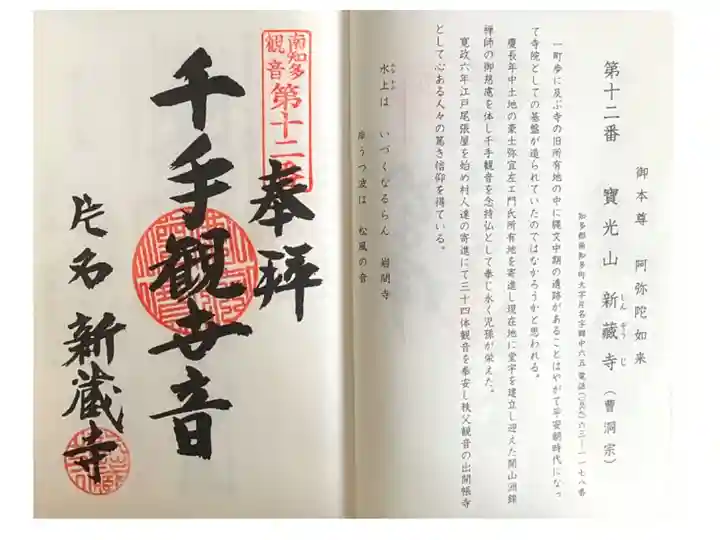 第十二番
御本尊　阿弥陀如来
寶光山　新藏寺（曹洞宗）
しんぞうじ
一町歩に及ぶ寺の旧所有地の中に縄文中期の遺跡があることはやがて平安朝時代になっ
て寺院としての基盤が造られていたのではなかろうかと思われる。
慶長年中土地の豪士弥宜左エ門氏所有地を寄進し現在地に堂宇を建立し迎えた開山洲錦
禅師の御慈慮を体し千手観音を念持仏として奉じ永く児孫が栄えた。
寛政六年江戸尾張屋を始め村人達の寄進にて三十四体観音を奉安し秩父観音の出開帳寺
として心ある人々の篤き信仰を得ている。
水上は　いづくなるらん　岩間寺
岸うつ波は　松風の音
南知多
観音
第十二番
奉拜
千手觀世音
片名　新藏寺